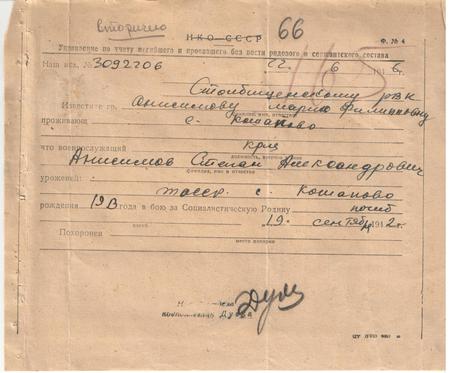 вторично
НКО СССР 66
Ф. № 4
Управление по учету погибшего и пропавшего без вести рядового и сержантского состава
Наш исх. № 3092206 22 6 1946 г.
Столбищенскому РВК
Известите гр. Анисимову Марию Филипповну
фамилия, имя, отчество
проживающ с. Кошаково
что военнослужащий кр-ц
должность, воинское звание
Анисимов Степан Александрович
фамилия, имя и отчество
уроженец: ТАССР с. Кошаково
рождения 19 года в бою за Социалистическую Родину погиб
19 сентября 1942 г.
Похоронен
место похорон